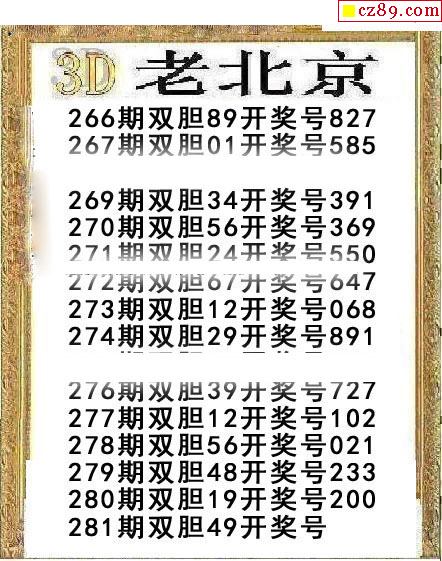 cz89.com
3D 老北京
266期双胆89开奖号827
267期双胆01开奖号585
269期双胆34开奖号391
270期双胆56开奖号369
271期双胆24开奖号550
272期双胆67开奖号647
273期双胆12开奖号068
274期双胆29开奖号891
276期双胆39开奖号727
277期双胆12开奖号102
278期双胆56开奖号021
279期双胆48开奖号233
280期双胆19开奖号200
281期双胆49开奖号